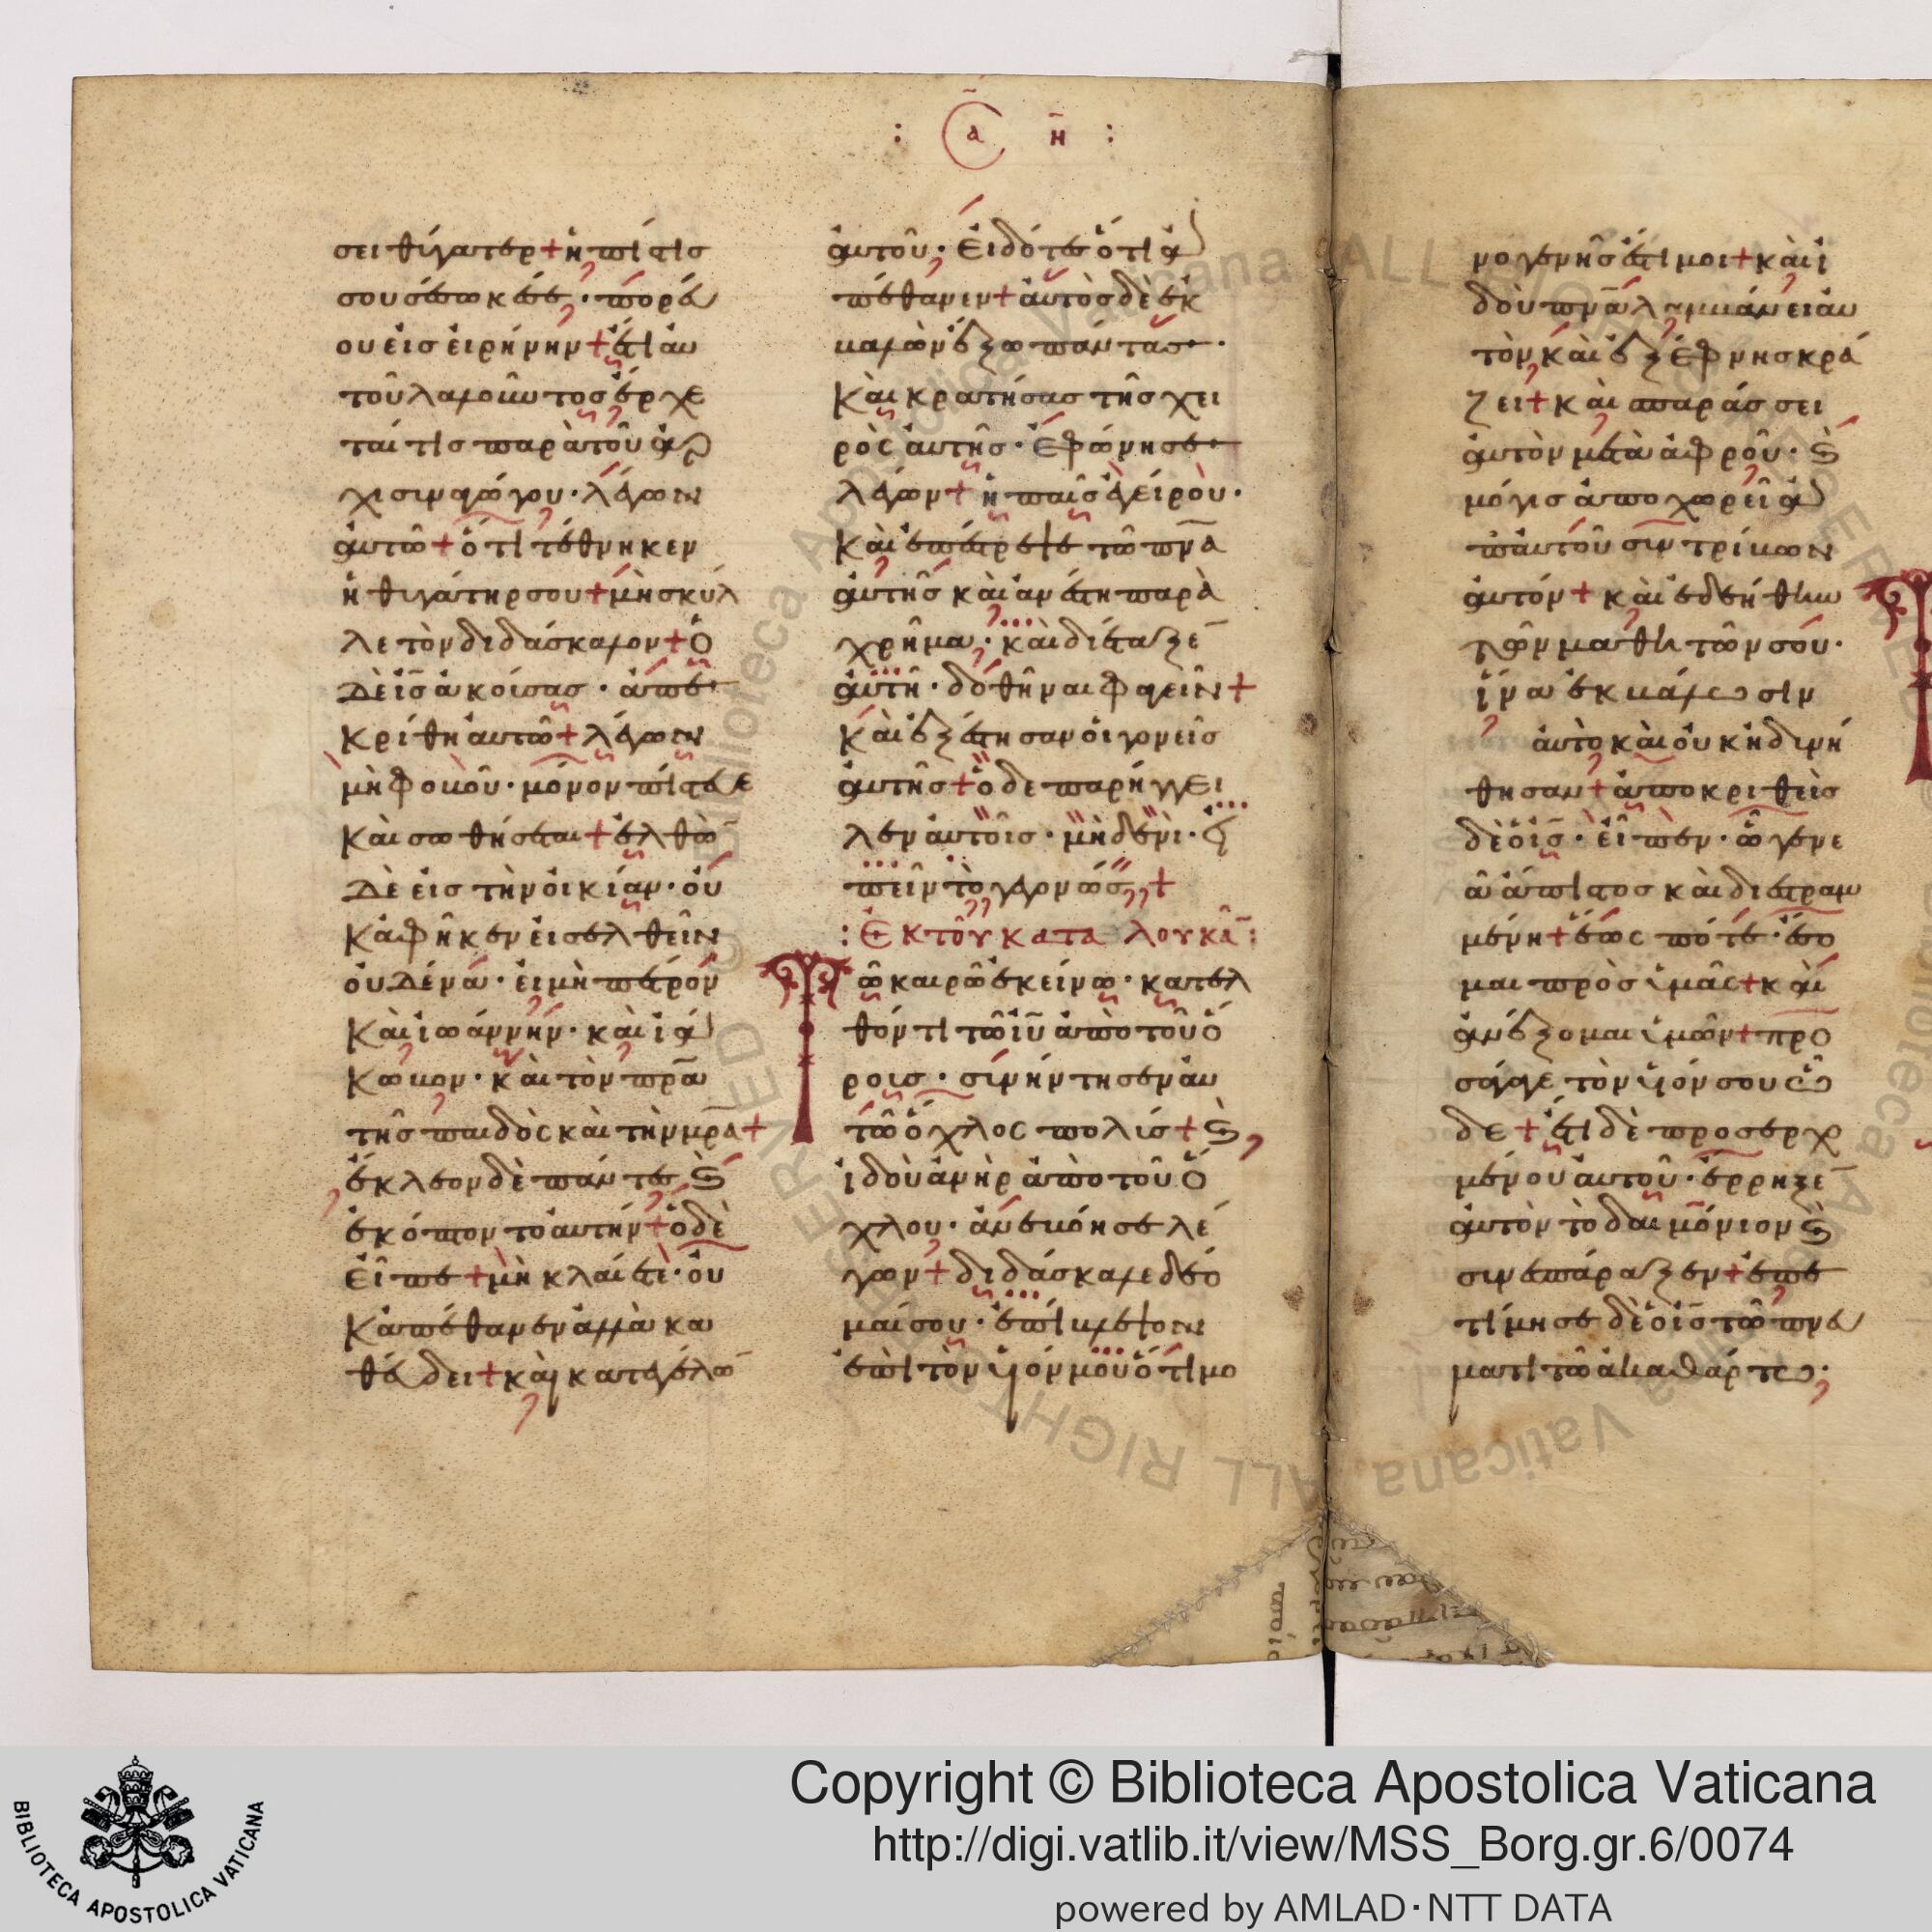 : Cα η :
σει θύγατερ + ἡ πίστις
σου σέσωκέ σε · πορεύ
ου εἰς εἰρήνην + ἔτι αυ
τοῦ λαλοῦντος ἔρχε
ταί τις παρὰ τοῦ ἀρ
χισιναγώγου · λέγων
αὐτῶ + ὅτι τέθνηκεν
ἡ θιγάτηρ σου + μὴ σκύλ
λε τὸν διδάσκαλον + ὁ
δὲ ἰς̅ ἀκούσας · ἀπε
κρίθη αὐτῶ + λέγων
μὴ φοβοῦ · μόνον πίστευε
καὶ σωθήσεται + ἐλθὼ
δὲ εἰς τὴν οἰκίαν · οὐ
κ ἀφῆκεν εἰσελθεῖν
οὐδένα · εἰ μὴ πέτρον
καὶ ἰωάννην · καὶ ἰά
κωβον · καὶ τὸν πρ̅α
τῆς παιδὸς καὶ τὴν μρ̅α +
ἔκλεον δὲ πάντες ϗ
ἐκόπτοντο αὐτήν + ὁ δὲ
εἶπε + μὴ κλαίετε · οὐ
κ ἀπέθανεν ἀλλὰ κα
θεύδει + καὶ κατεγέλω
αὐτοῦ · εἰδότες ὅτι ἀ
πέθανεν + αὐτὸς δὲ ἐκ
βαλὼν ἔξω πάντας ·
καὶ κρατήσας τῆς χει
ρὸς αὐτῆς · ἐφώνησε ·
λέγων + ἡ παῖς ἐγείρου ·
καὶ ἐπέστρεψε τῶ πν̅α
αὐτῆς καὶ ἀνέστη παρὰ
χρῆμα · καὶ διέταξε
αὐτῆ · δοθῆναι φαγεῖν +
καὶ ἐξέστησαν οἱ γονεῖς
αὐτῆς + ὁ δε παρήγγει
λεν αὐτοῖς · μηδενὶ · εἰ
πεῖν τὸ γεγονώς +
: Ἐκ τοῦ κατα λουκᾶν :
Τῶ καιρῶ ἐκείνω · κατελ
θόντι τῶ ἰυ̅ ἀπὸ τοῦ ὄ
ρους · σινήντησεν αυ
τῶ ὄχλος πολίς + ϗ
ἰδοὺ ἀνὴρ ἀπὸ τοῦ ὄ
χλου · ἀνεβόησε λέ
γων + διδάσκαλε δέο
μαί σου · ἐπίβλεψον
ἐπὶ τὸν υἱόν μου ὅτι μο
νογενής ἐστί μοι + καὶ ἰ
δοὺ πν̅α λαμβάνει αὐ
τὸν καὶ ἐξέφνης κρά
ζει + καὶ σπαράσσει
αὐτὸν μετὰ ἀφροῦ · ϗ
μόγις ἀποχωρεῖ ἀ
π' αὐτοῦ σιντρίβων
αὐτόν + καὶ ἐδεήθην
τῶν μαθητῶν σου ·
ἵνα ἐκβάλωσιν
αὐτὸ καὶ οὐκ ἠδινή
θησαν + ἀποκριθεὶς
δὲ ὁ ἰς̅ · εἶπεν · ὦ γενε
ὰ ἄπιστος καὶ διεστραμ
μένη + ἕως πότε · ἔσο
μαι πρὸς ὑμᾶς + καὶ
ἀνέξομαι ὑμῶν + προ
σάγαγε τὸν υἱόν σου ὧ
δε + ἔτι δὲ προσερχ
μένου αὐτοῦ · ἔρρηξε
αὐτὸν τὸ δαιμόνιον ϗ
σινεσπάραξεν + ἐπε
τίμησε δὲ ὁ ἰς̅ τῶ πνεύ
ματι τῶ ἀκαθάρτω ·
BIBLIOTECA APOSTOLICA VATICANA
Copyright © Biblioteca Apostolica Vaticana
http://digi.vatlib.it/view/MSS_Borg.gr.6/0074
powered by AMLAD·NTT DATA